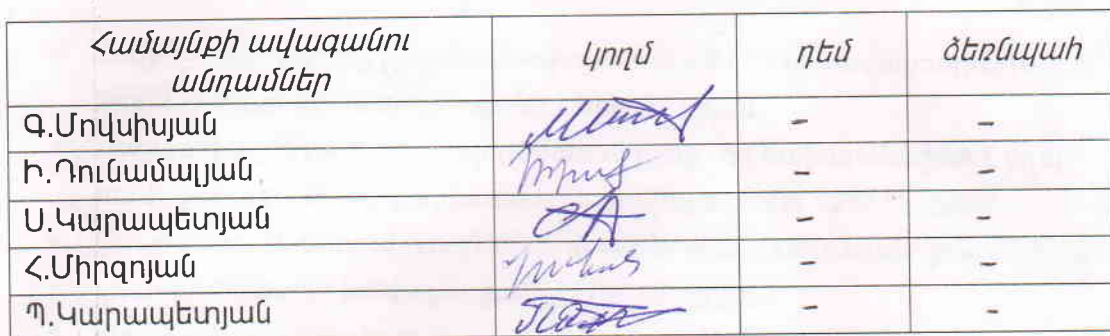 Համայնքի ավագանու կողմ դեմ ձեռնպահ
անդամներ
Գ.Մովսիսյան - -
Ի.Դունամալյան - -
Ս.Կարապետյան - -
Հ.Միրզոյան - -
Պ.Կարապետյան - -